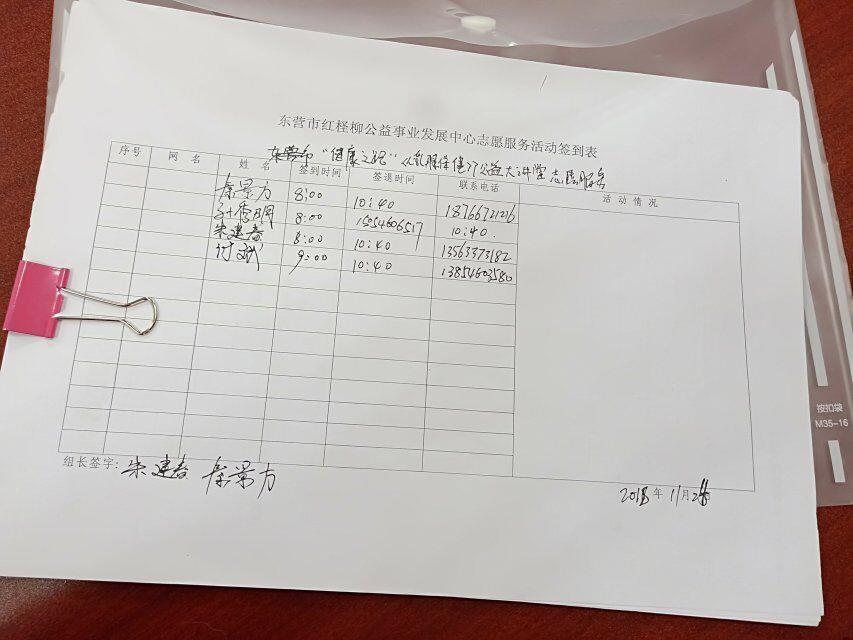 东营市红柽柳公益事业发展中心志愿服务活动签到表
"健康之路" 公益大讲堂志愿服务
序号 网名 姓名 签到时间 签退时间 联系电话 活动情况
秦景方 8:00 10:40 18766721216
8:00 15054606517 10:40.
朱建春 8:00 10:40 13563373182
付斌 9:00 10:40 13854603580
组长签字: 朱建春 秦景方
2018年11月
按扣袋
M35-16